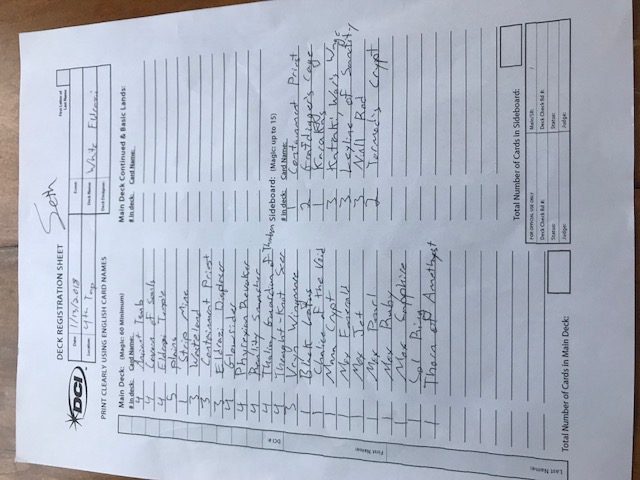 Seth
DCI
DECK REGISTRATION SHEET
First Letter of Last Name
Date: 1/13/2018
Event:
Location: 4th Tap
Deck Name: White Eldrazi
Deck Designer:
PRINT CLEARLY USING ENGLISH CARD NAMES
Main Deck: (Magic: 60 Minimum)
# in deck: Card Name:
4 Ancient Tomb
4 Cavern of Souls
4 Eldrazi Temple
5 plains
1 Strip Mine
3 Wasteland
3 Containment Priest
3 Eldrazi Displacer
4 Glowrider
4 Phyrexian Revoker
4 Reality Smasher
4 Thalia, Guardian of Thraben
4 Thought-Knot Seer
3 Vryn Wingmare
1 Black Lotus
1 Chalice of the Void
1 Mana Crypt
1 Mox Emerald
1 Mox Jet
1 Mox Pearl
1 Mox Ruby
1 Mox Sapphire
1 Sol Ring
1 Thorn of Amethyst
Total Number of Cards in Main Deck:
Main Deck Continued & Basic Lands:
# in deck: Card Name:
Sideboard: (Magic: up to 15)
# in deck: Card Name:
1 Containment Priest
2 Grafdigger's Cage
1 Karakas
3 Kataki, War's Wage
3 Leyline of Sanctity
3 Null Rod
2 Tormod's Crypt
Total Number of Cards in Sideboard:
FOR OFFICIAL USE ONLY
Main/SB: /
Deck Check Rd #:
Deck Check Rd #:
Status:
Status:
Judge:
Judge:
DCI #:
First Name:
Last Name: